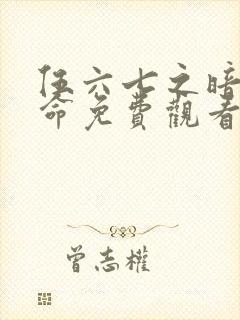 伍六七之暗
命免費觀看
曾志權